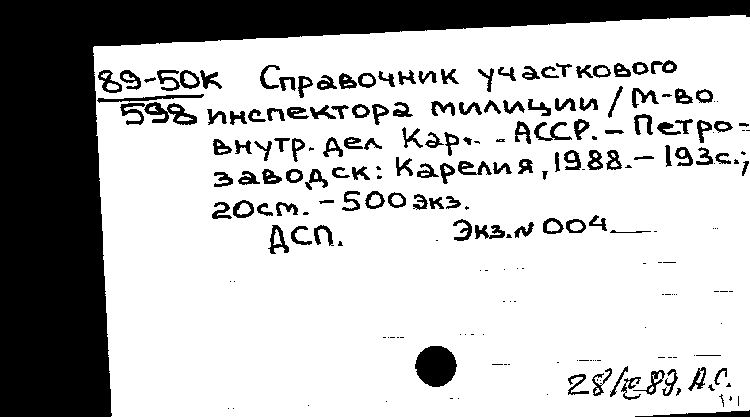 89-50К Справочник участкового
598 инспектора милиции / М-во
внутр. дел Кар. АССР. – Петро=
заводск: Карелия, 1988. – 193с.;
20см. – 500 экз.
ДСП. Экз. N 004
28/ 89, А.С.